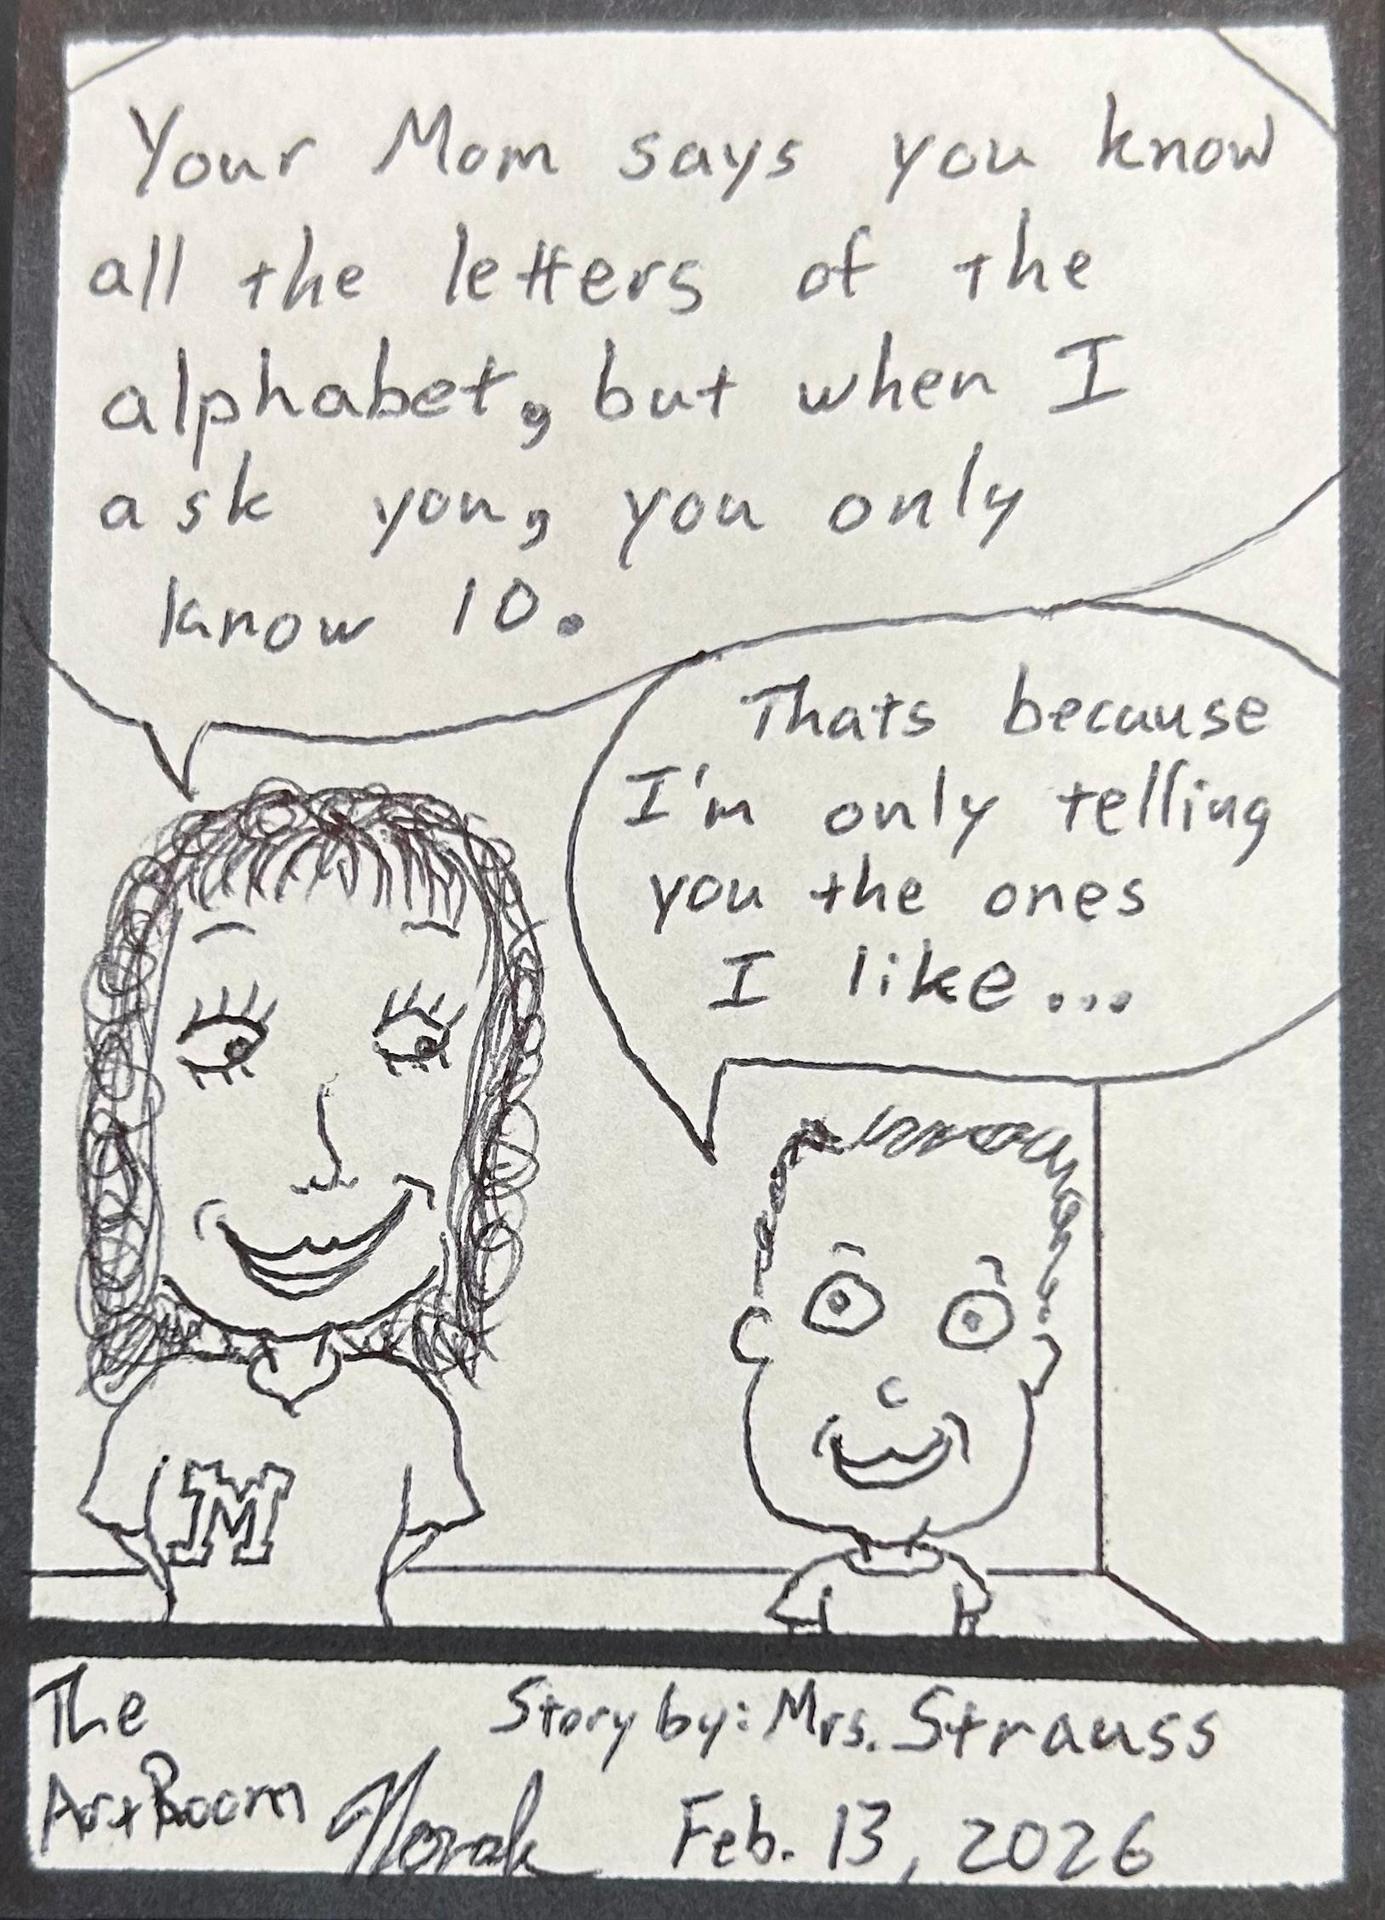 Your Mom says you know
all the letters of the
alphabet, but when I
ask you, you only
know 10.
Thats because
I'm only telling
you the ones
I like...
M
The
Art Room
Story by: Mrs. Strauss
Novak
Feb. 13, 2026